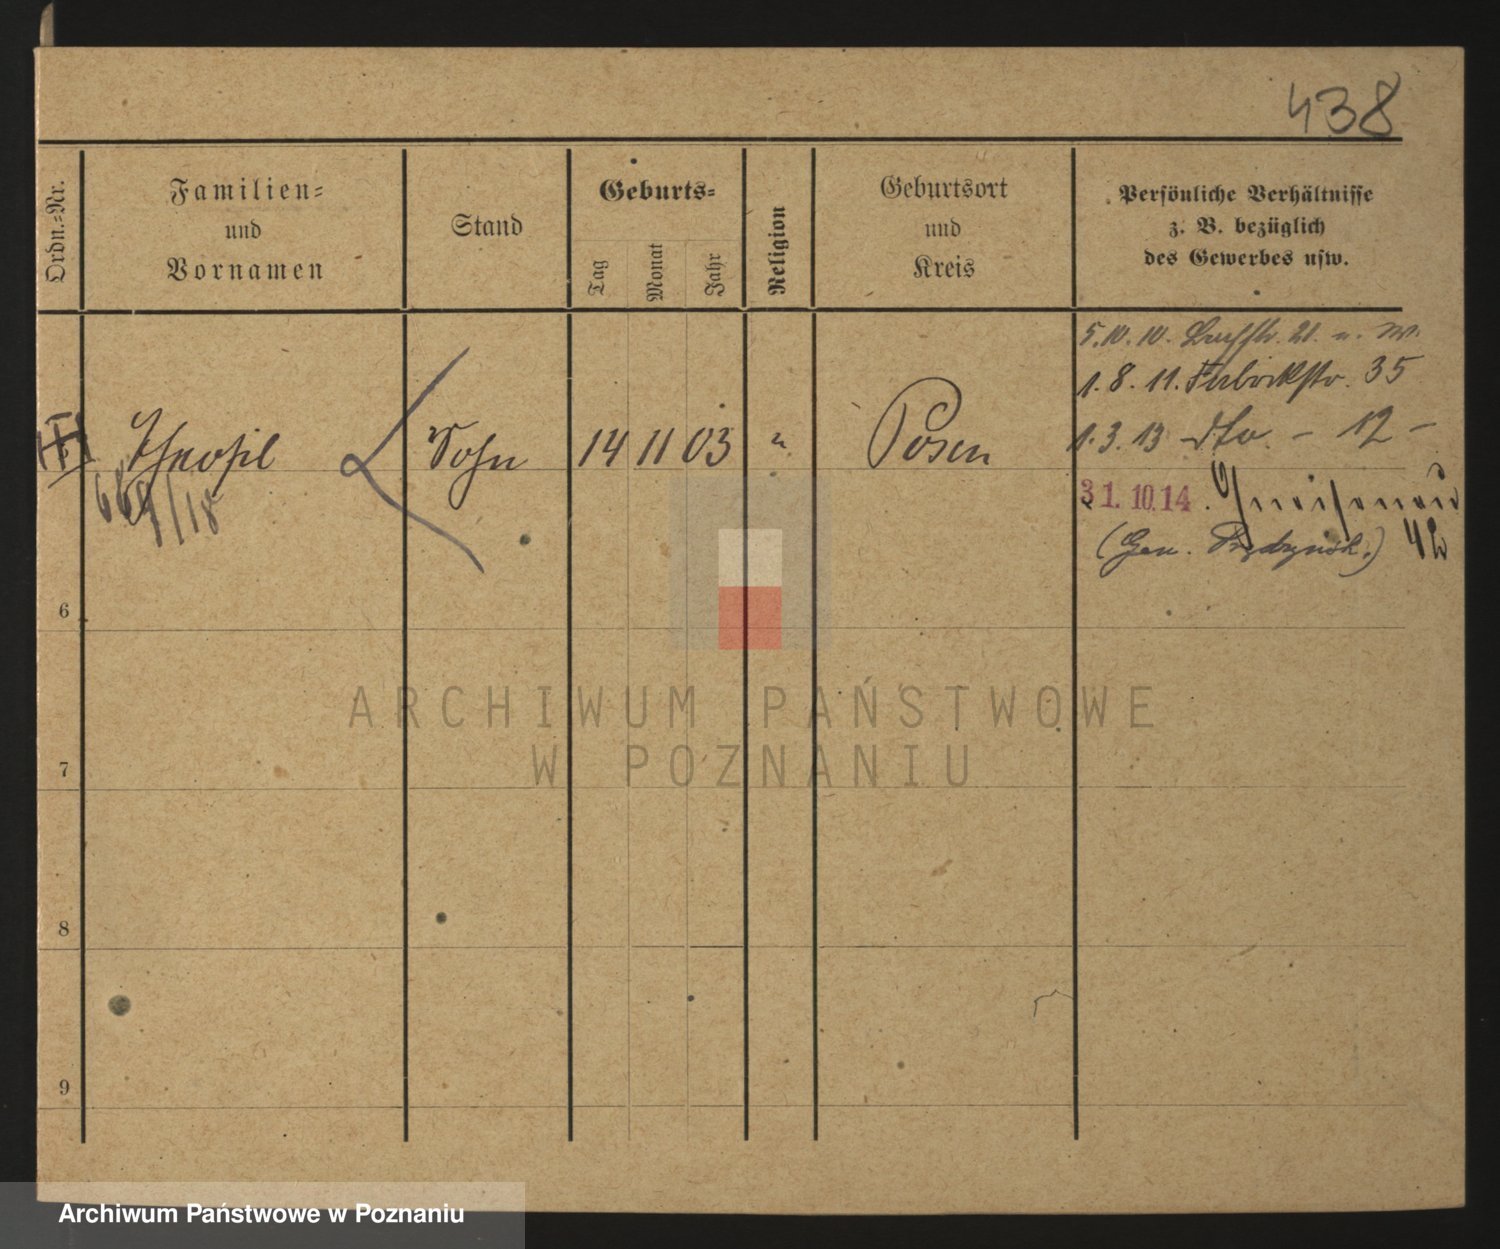 438
Ordn.-Nr.
Familien-
und
Vornamen
Stand
Geburts-
Tag
Monat
Jahr
Religion
Geburtsort
und
Kreis
Persönliche Verhältnisse
z. B. bezüglich
des Gewerbes usw.
5.10.10. 21. u. W.
1.8.11. Fabrikstr. 35
Theofil Sohn 14 11 03 " Posen
1.3.13 dto. - 12 -
669/18
31.10.14. Gneisenau
(Gen. Prądzyńsk.) 42
6
7
8
9
ARCHIWUM PAŃSTWOWE
W POZNANIU
Archiwum Państwowe w Poznaniu